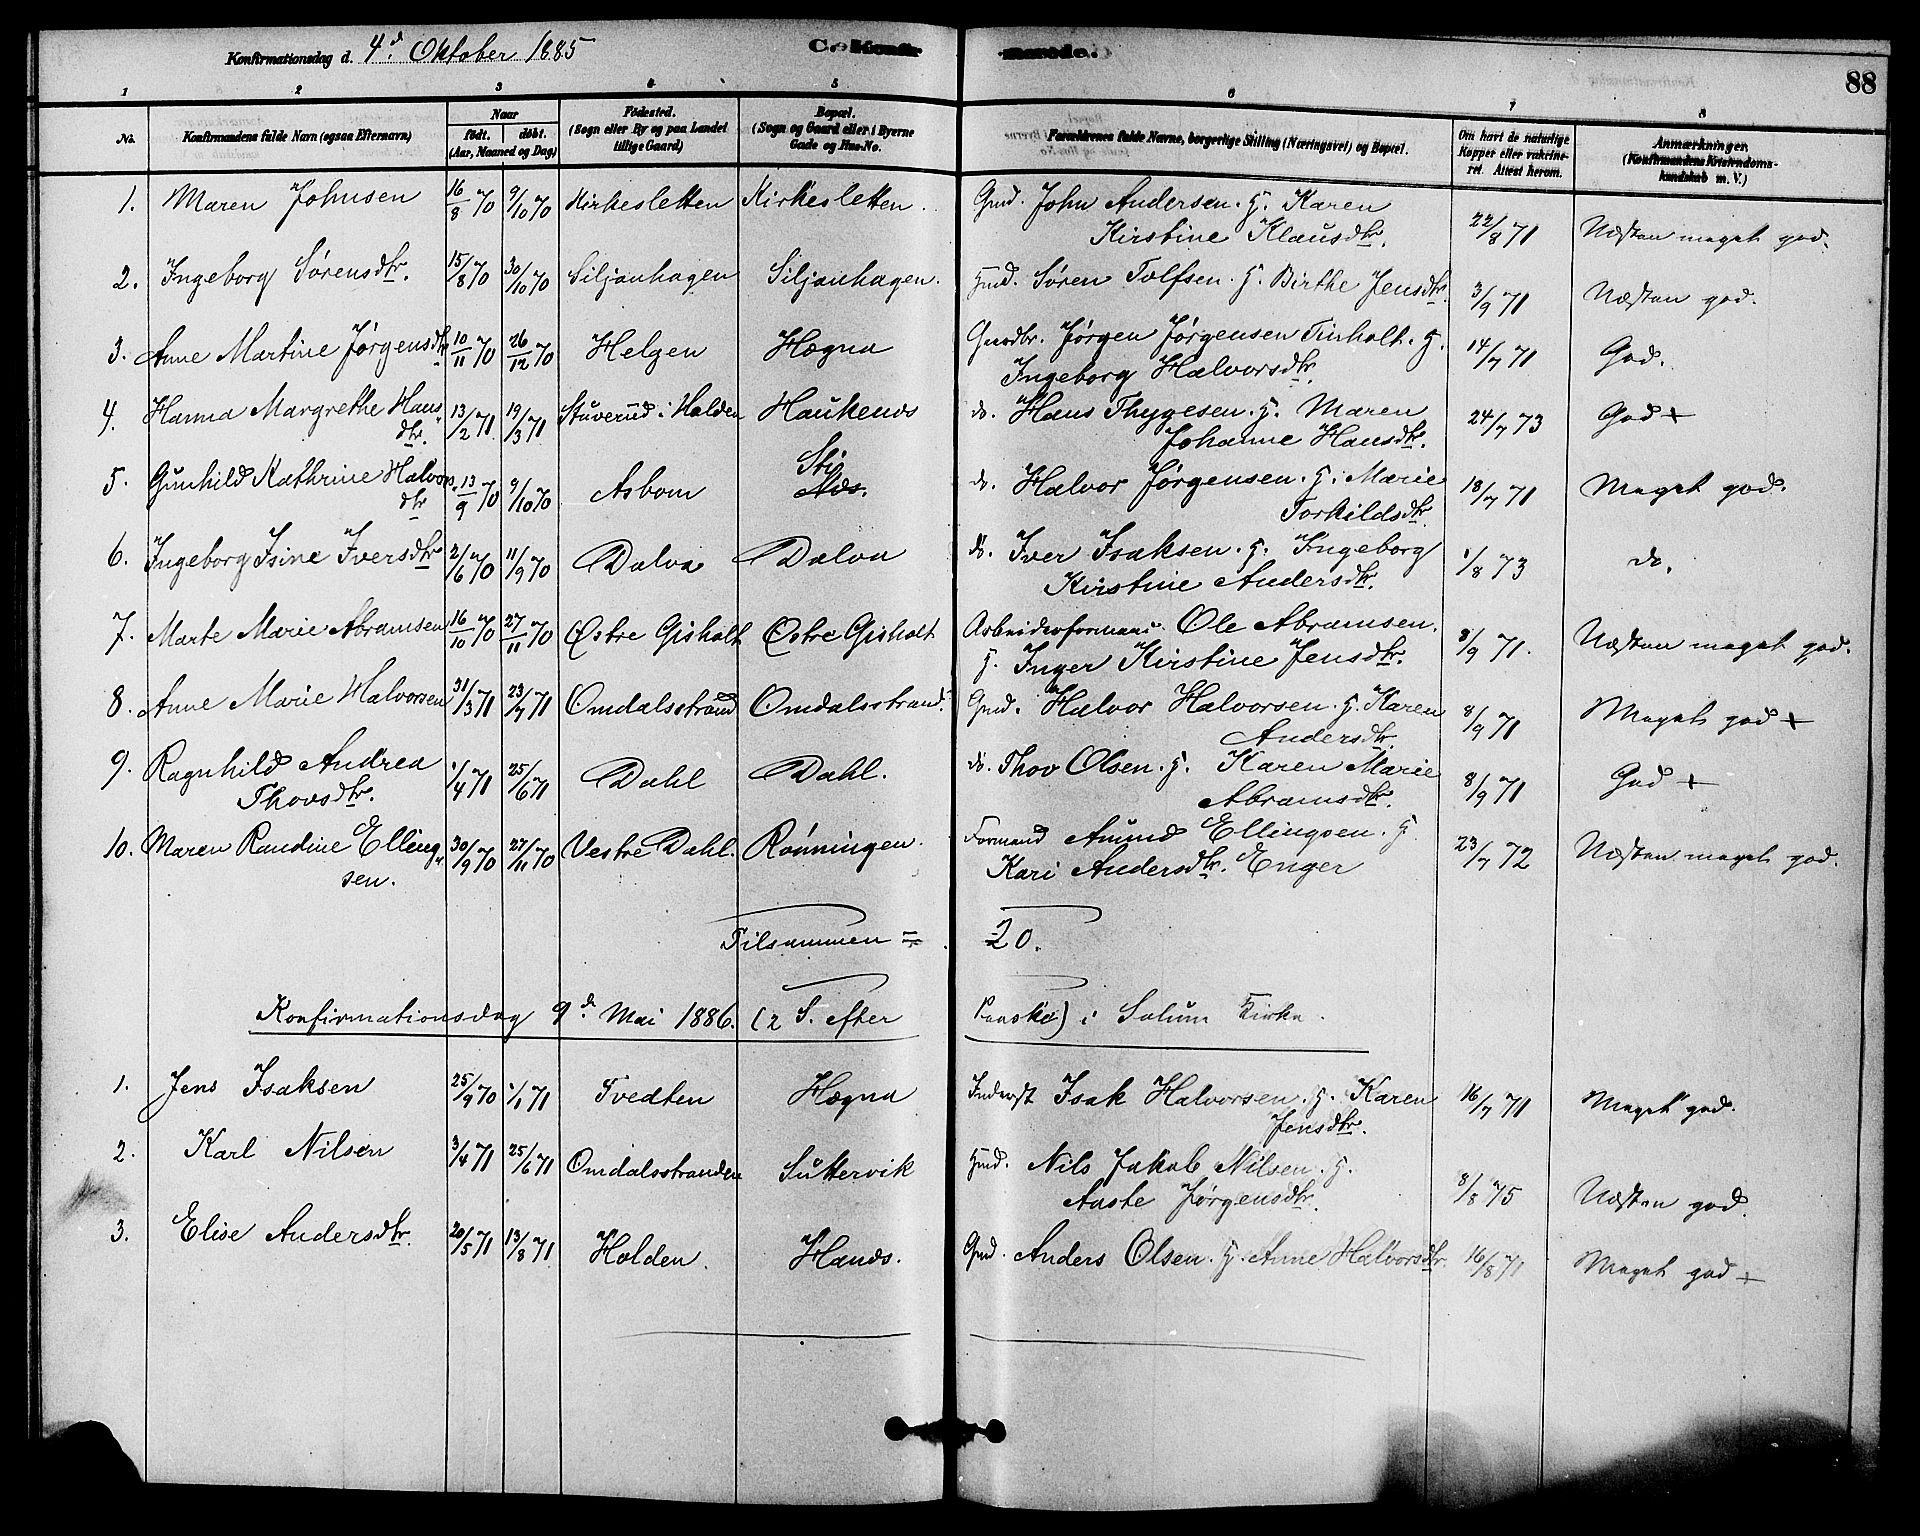 Konfirmationsdag d. 4d Oktober 1885
C. Konfir- merede.
88
1 2 3 4 5 6 7 8
No.
Konfirmandens fulde Navn (ogsaa Efternavn)
Naar født. døbt. (Aar, Maaned og Dag)
Fødested. (Sogn eller By og paa Landet tillige Gaard)
Bopæl. (Sogn og Gaard eller i Byerne Gade og Hus-No.
Forældrenes fulde Navne, borgerlige Stilling (Næringsvei) og Bopæl.
Om havt de naturlige Kopper eller vakcineret. Attest herom.
Anmærkninger. (Konfirmandens Kristendomskundskab m. V.)
1. Maren Johnsen 16/8 70 9/10 70 Kirkesletten Kirkesletten. Gmd. John Andersen. H. Karen
Kirstine Klausdtr. 22/8 71 Næsten meget god.
2. Ingeborg Sørensdtr. 15/8 70 30/10 70 Siljanhagen Siljanhagen. Hmd. Søren Tolfsen. H. Birthe Jensdtr. 3/9 71 Næsten god.
3. Anne Martine Jørgensdtr 10/11 70 26/12 70 Helgen Hægna Gaardbr. Jørgen Jørgensen Tinholt. H.
Ingeborg Halvorsdtr. 14/7 71 God.
4. Hanna Margrethe Hans-
dtr. 13/2 71 19/3 71 Stuverud i Holden Haukenæs do. Hans Thygesen. H. Maren
Johanne Hansdtr. 24/7 73 God +
5. Gunhild Kathrine Halvors-
dtr 13/9 70 9/10 70 Asbom Sti
Næs. do. Halvor Jørgensen. H. Marie
Torkildsdtr. 18/7 71 Meget god.
6. Ingeborg Isine Iversdtr 2/6 70 11/9 70 Dalva Dalva do. Iver Isaksen. H. Ingeborg
Kirstine Andersdtr. 1/8 73 do.
7. Marte Marie Abramsen 16/10 70 27/11 70 Østre Gisholt Østre Gisholt Arbeiderformand Ole Abramsen.
H. Inger Kirstine Jensdtr. 8/9 71. Næsten meget god.
8. Anne Marie Halvorsen 31/3 71 23/7 71 Omdalsstrand Omdalsstrand. Gmd. Halvor Halvorsen. H. Karen
Andersdtr. 8/9 71 Meget god +
9. Ragnhild Andrea
Thovsdtr. 1/4 71 25/6 71 Dahl Dahl. do. Thov Olsen. H. Karen Marie
Abramsdtr. 8/9 71 God +
10. Maren Randine Elling-
sen. 30/9 70 27/11 70 Vestre Dahl. Rønningen. Formand Amund Ellingsen. H.
Kari Andersdtr. Enger 23/7 72 Næsten meget god.
Tilsammen = 20.
Konfirmationsdag 9d Mai 1886. (2 S. efter Paaske) i Solum Kirke.
1. Jens Isaksen 25/9 70 1/1 71 Tvedten Hægna Inderst Isak Halvorsen. H. Karen
Jensdtr. 16/7 71 Meget god.
2. Karl Nilsen 3/4 71 25/6 71 Omdalsstranden Suttervik Hmd. Nils Jakob Nilsen. H.
Aaste Jørgensdtr. 8/8 75 Næsten god.
3. Elise Andersdtr. 20/5 71 13/8 71 Holden. Hanæs. Gmd. Anders Olsen. H. Anne Halvorsdtr. 16/8 71 Meget god +